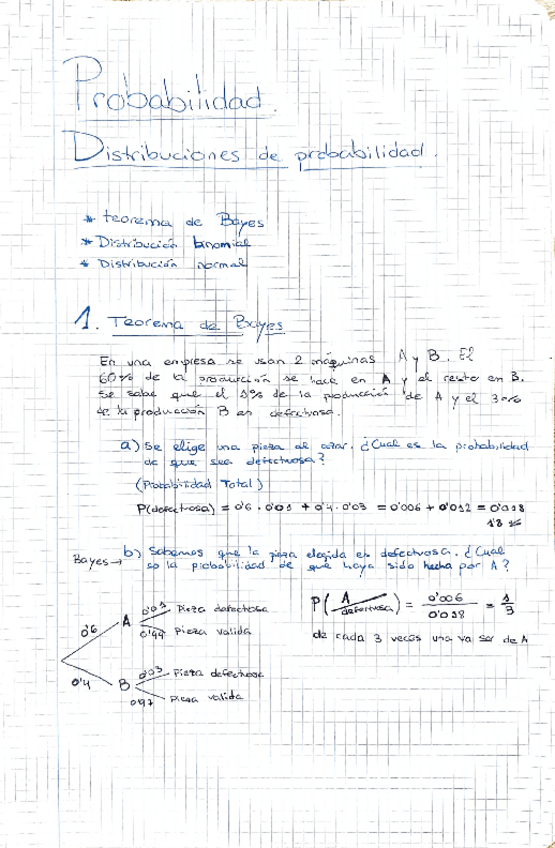 Probabilidad.
Distribuciones de probabilidad.
* teorema de Bayes
* Distribución binomial
* Distribución normal
1. Teorema de Bayes
En una empresa se usan 2 máquinas A y B. El
60% de la producción se hace en A y el resto en B.
Se sabe que el 1% de la producción de A y el 3%
de la producción B es defectuosa.
a) Se elige una pieza al azar. ¿Cual es la probabilidad
de que sea defectuosa?
(Probabilidad Total)
P(defectuosa) = 0'6 · 0'01 + 0'4 · 0'03 = 0'006 + 0'012 = 0'018
1'8 %
Bayes → b) Sabemos que la pieza elegida es defectuosa. ¿Cual
es la probabilidad de que haya sido hecha por A?
0'6 A 0'01 Pieza defectuosa
0'99 Pieza valida
0'4 B 0'03 Pieza defectuosa
0'97 Pieza valida
P(A/defectuosa) = 0'006/0'018 = 1/3
de cada 3 veces una va ser de A